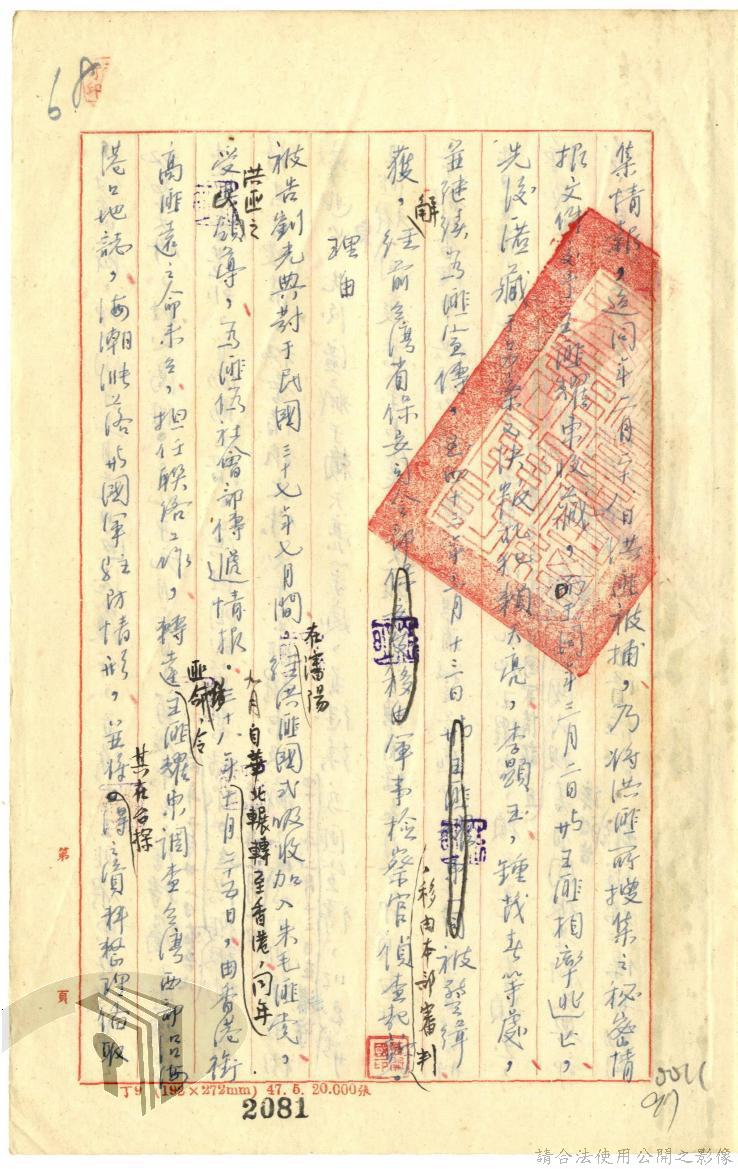 68
集情報，迨同年二月二十八日洪匪被捕，乃將洪匪所搜集之秘密情
報文件交予王匪耀東收藏，而于同年三月二日與王匪相率逃亡，
先後潛藏于
李顯玉，鍾茂春等處，
並繼續為匪宣傳，至四十三年二月十三日與王匪
被警緝
獲，解經前台灣省保安司令部
移由軍事檢察官偵查起訴，
，移由本部審判
理由
被告劉光典對于民國三十七年七月間，在瀋陽經洪匪國式吸收加入朱毛匪黨，
受洪匪之領導，為匪偽社會部傳遞情報。三十八年九月自華北輾轉至香港，同年
十月二十五日，由香港銜
高匪遠之命來台，担任聯絡工作，轉達匪命，令王匪耀東調查台灣西部沿海
港口地誌，海潮漲落與國軍駐防情形，並將其在台探得之資料整理備取
第
頁
丁9 (192×272mm) 47. 5. 20.000張
2081
0011
請合法使用公開之影像